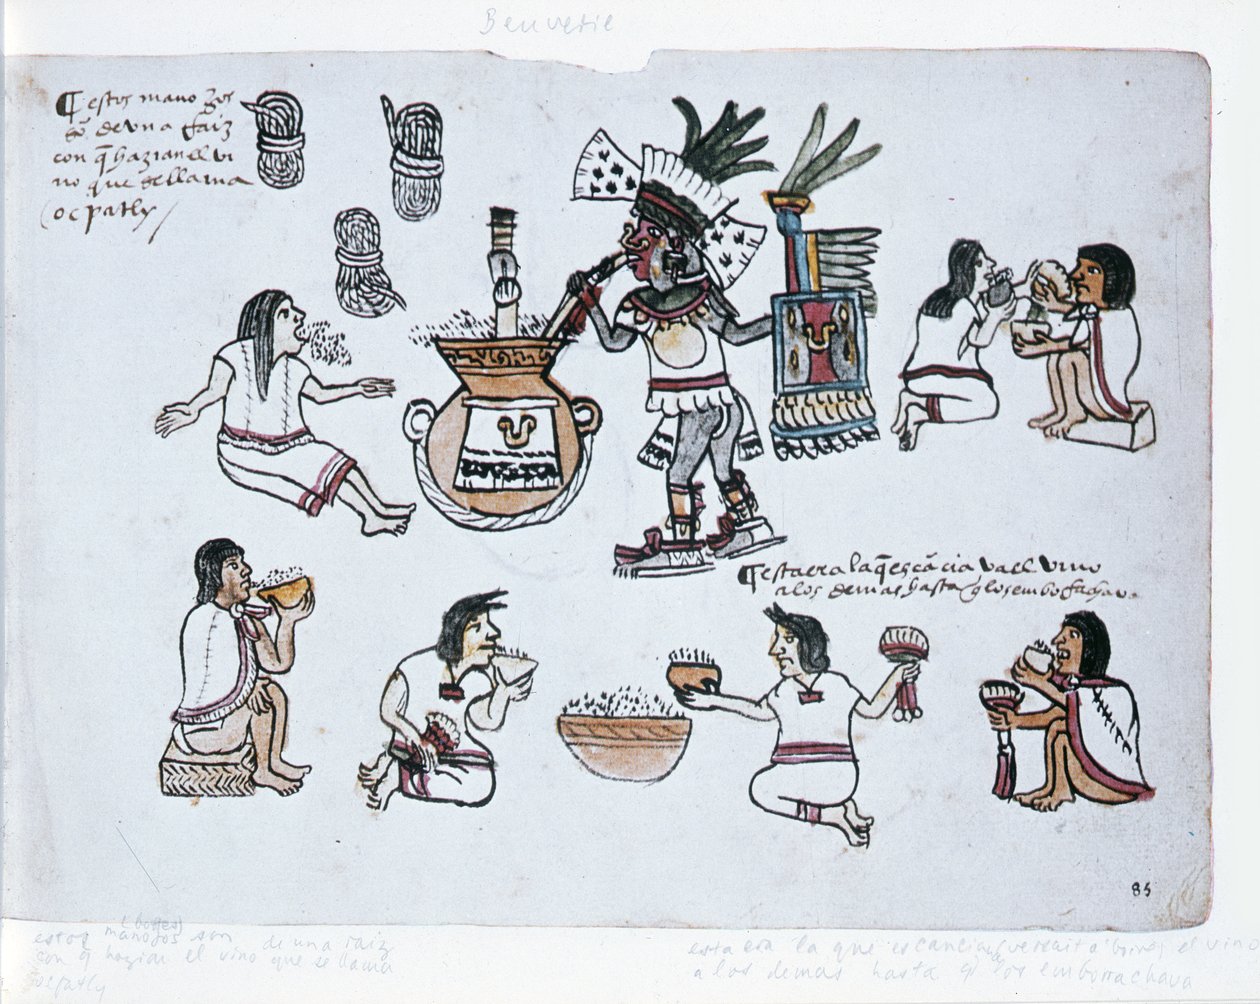 Benverie
estos mano Jos
sō de vna Raiz
con q̄ hazian el vi
no que se llama
ocpatly
esta era la q̄ escācia va el vino
a los demas hasta q̄ los emborrachav.
85
(borges)
estos manojos son de una raiz
con q hazian el vino que se llama
ocpatly
esta era la que escanciava el vino
a los demas hasta q los emborrachava